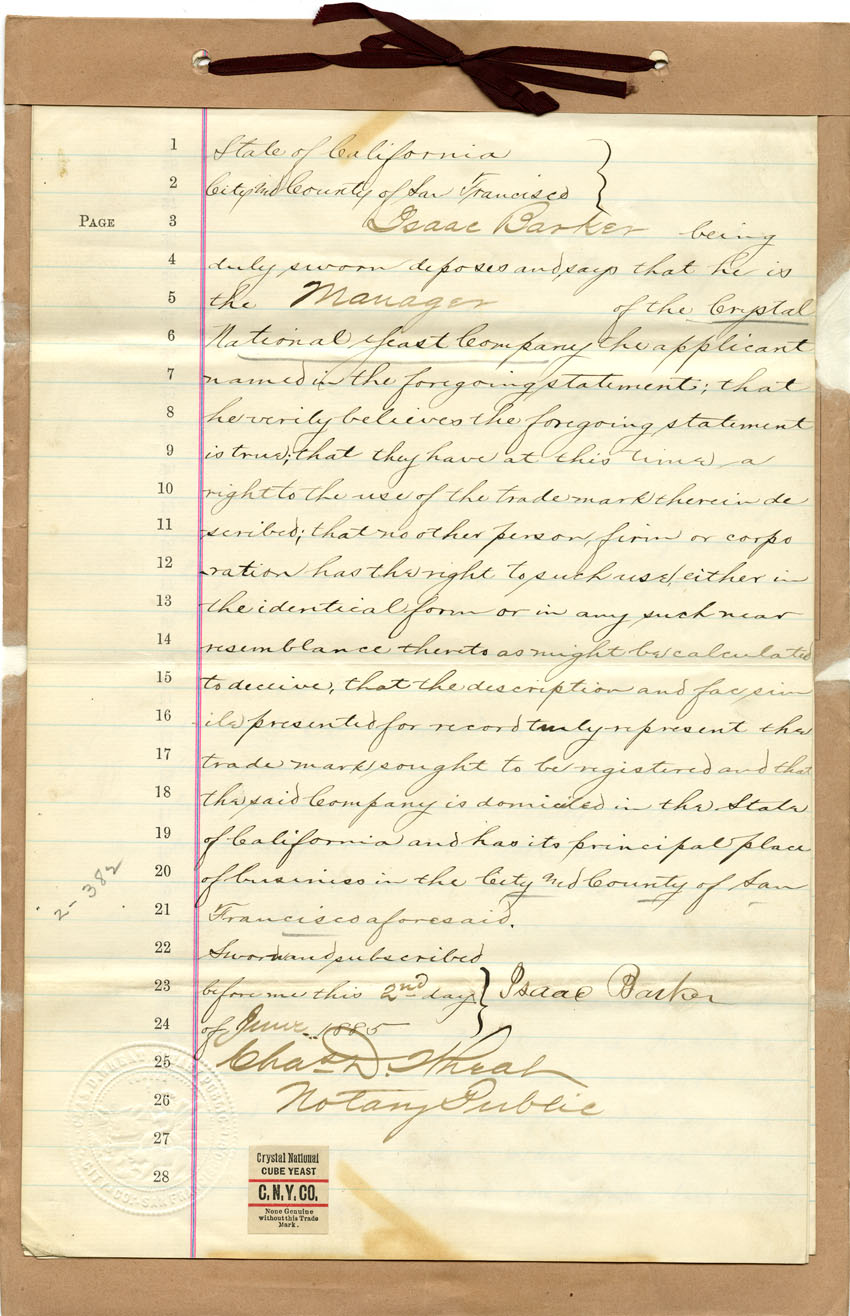 PAGE
1 State of California
2 City and County of San Francisco
3 Isaac Barker being
4 duly sworn deposes and says that he is
5 the Manager of the Crystal
6 National Yeast Company the applicant
7 named in the foregoing statement; that
8 he verily believes the foregoing statement
9 is true; that they have at this time a
10 right to the use of the trade mark therein de
11 scribed; that no other person, firm or corpo
12 ration has the right to such use, either in
13 the identical form or in any such near
14 resemblance thereto as might be calculated
15 to deceive, that the description and fac sim
16 ile presented for record truly represent the
17 trade mark sought to be registered and that
18 the said Company is domiciled in the State
19 of California and has its principal place
20 of business in the City and County of San
21 Francisco aforesaid.
22 Sworn and subscribed
23 before me this 2nd day Isaac Barker
24 of June 1885
25 Chas. D. Wheat
26 Notary Public
27
28
2-382
Crystal National
CUBE YEAST
C.N.Y.CO.
None Genuine
without this Trade
Mark.